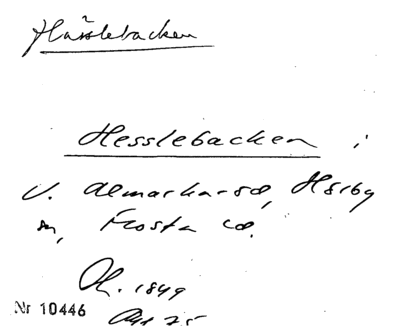 Hässlebacken
Hesslebacken i
V. Almarka-sö, Hörby
sn, Frosta hd.
Ol. 1849
Nr 10446